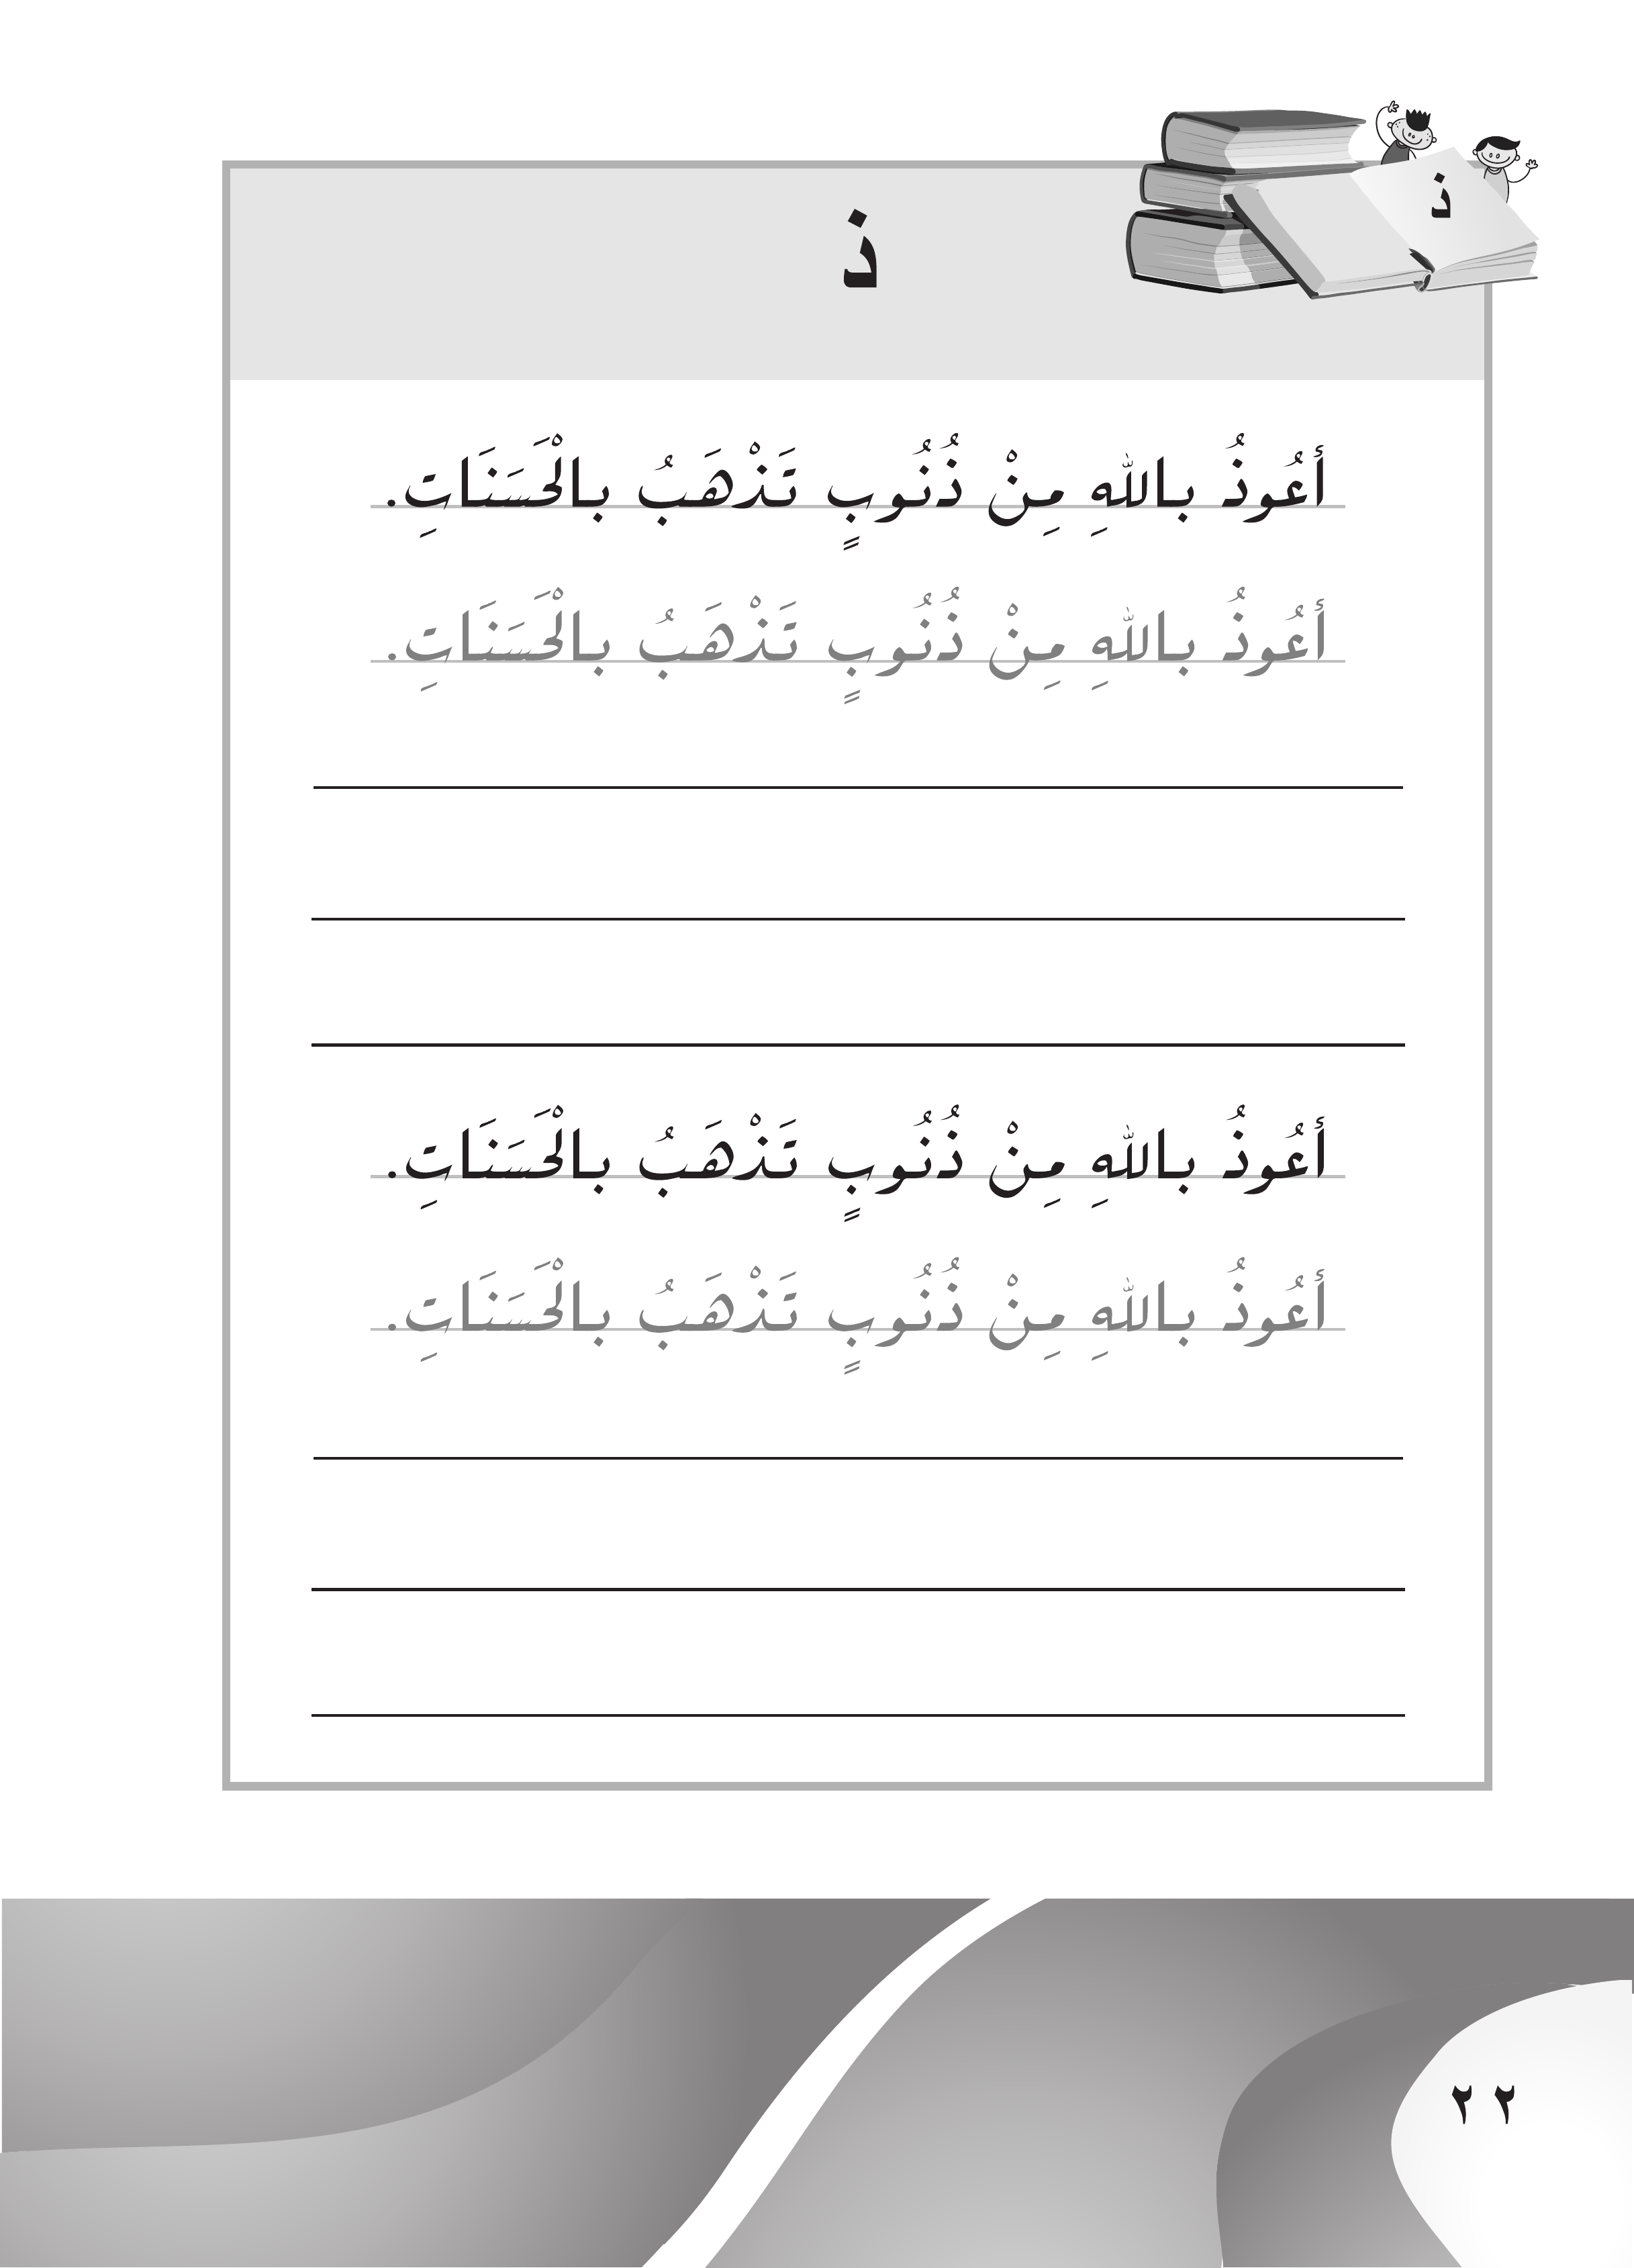 ذ
ذ
أعُوذُ بـاللهِ مِـنْ ذُنُـوبٍ تَـذْهَبُ بـالْحَسَنَـاتِ.
أعُوذُ بـاللهِ مِـنْ ذُنُـوبٍ تَـذْهَبُ بـالْحَسَنَـاتِ.
أعُوذُ بـاللهِ مِـنْ ذُنُـوبٍ تَـذْهَبُ بـالْحَسَنَـاتِ.
أعُوذُ بـاللهِ مِـنْ ذُنُـوبٍ تَـذْهَبُ بـالْحَسَنَـاتِ.
٢٢